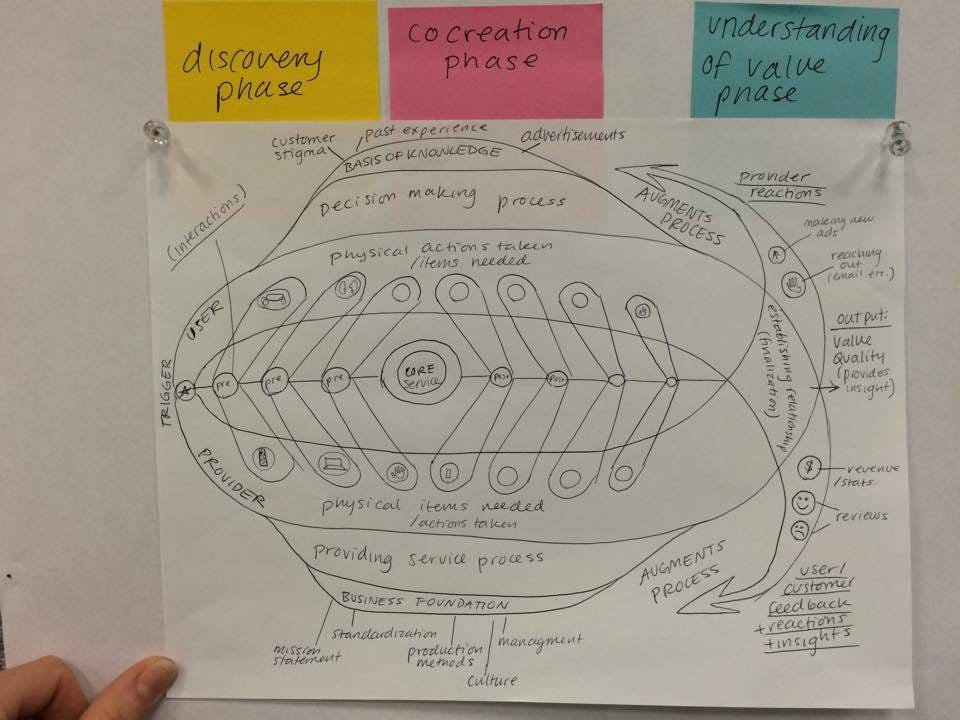 discovery
phase
cocreation
phase
understanding
of value
phase
customer
stigma
past experience
advertisements
BASIS OF KNOWLEDGE
Decision making process
(Interactions)
physical actions taken
/items needed
USER
TRIGGER
pre
pre
pre
CORE
service
post
post
PROVIDER
physical items needed
/actions taken
Providing service process
BUSINESS FOUNDATION
mission
statement
standardization
production
methods
culture
managment
AUGMENTS
PROCESS
provider
reactions
making new
ads
reaching
out
(email etc.)
establishing relationship
(finalization)
OUTPUT:
value
Quality
(provides
insight)
$
revenue
/stats
reviews
AUGMENTS
PROCESS
user/
customer
feedback
+reactions
+insights